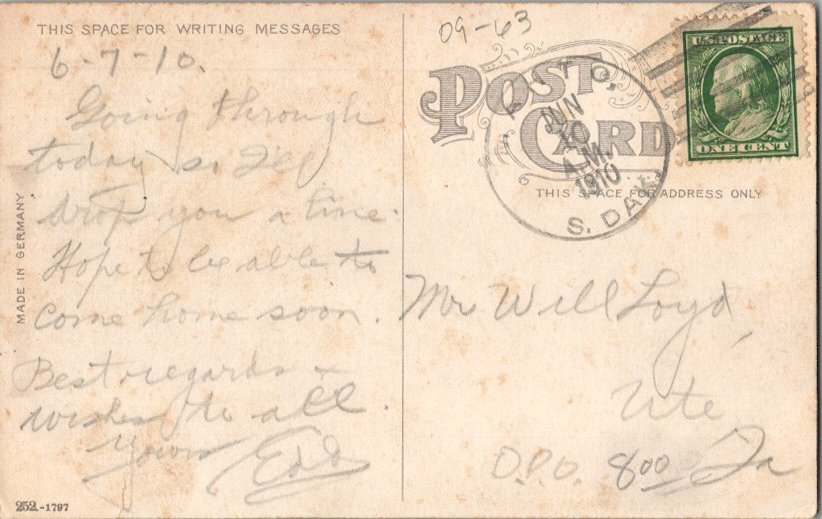 THIS SPACE FOR WRITING MESSAGES
6-7-10.
Going through
today so I'll
drop you a line.
Hope to be able to
come home soon.
Best regards &
wishes to all.
Yours Edd
MADE IN GERMANY
252-1797
09-63
POST
CARD
THIS SPACE FOR ADDRESS ONLY
JUN
10
A.M.
1910
S. DAK.
U.S. POSTAGE
ONE CENT
Mr Will Loyd,
Ute
O.P.O. 800 Ia